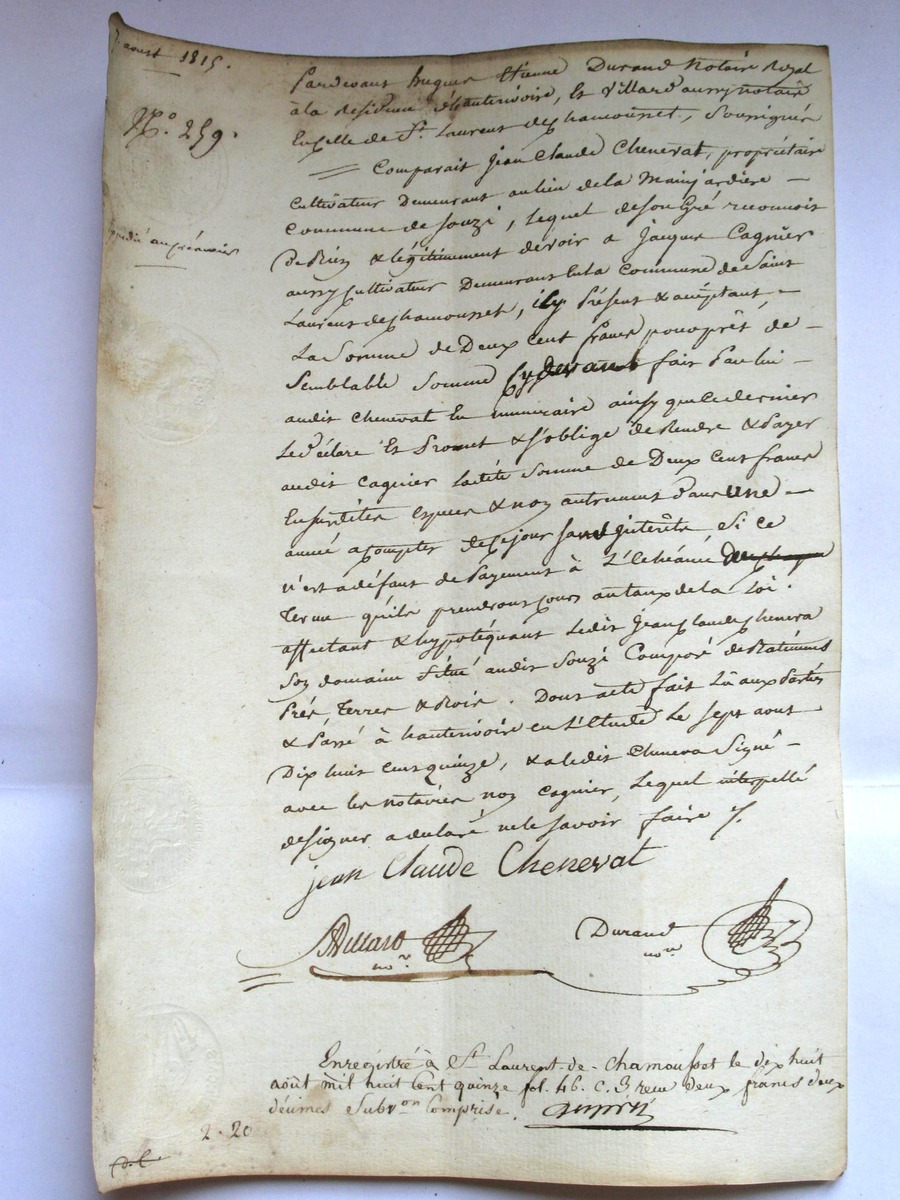 7 aoust 1815.
N.° 259.
expédié au créancier
Pardevant hugues Etienne Durand Notaire Royal
à la Residence d'hauterivoire, Et Villard aussy notaire
En celle de St. Laurent de chamousset, Soussignés
Comparait Jean Claude Chenevat, propriétaire
Cultivateur Demeurant au lieu de la Mainjardiere
Commune de Souzi, Lequel de son Gré reconnoit
De Bien & légitimement devoir a Jacques Cagnier
aussy Cultivateur Demeurant En la Commune de Saint
Laurent de chamousset, icy Présent & acceptant,
La Somme de Deux Cent francs pour prêt de
Semblable Somme Cydevant fait Par lui
audit Chenevat En numéraire ainsy que Ce dernier
Le Déclare Et Promet & s'oblige de Rendre & Payer
audit Cagnier Ladite Somme de Deux Cent francs
En Susdites Especes & non autrement Dans une
année a Compter de Ce jour sans intérêts Si Ce
n'est a défaut de Payement à L'Echéance
Terme qu'ils prendront cours au taux de la Loi.
affectant & hypotéquant Ledit Jean Claude Chenevat
Son domaine situé audit Souzi Composé de Batiments
Prés, Terres & Bois. Dont acte fait Lu aux Parties
& Passé à hauterivoire en L'Etude Le Sept aout
Dix huit Cent quinze, & a ledit Chenevat Signé
avec les notaires non Cagnier, Lequel interpellé
de signer a déclaré ne le Savoir faire /.
jean Claude Chenevat
Villard
nore.
Durand
nore
Enregistré à St Laurent de Chamousset le dix huit
août mil huit cent quinze fol. 46. C. 3 reçu deux francs deux
décimes Subvon Comprise.
2-20